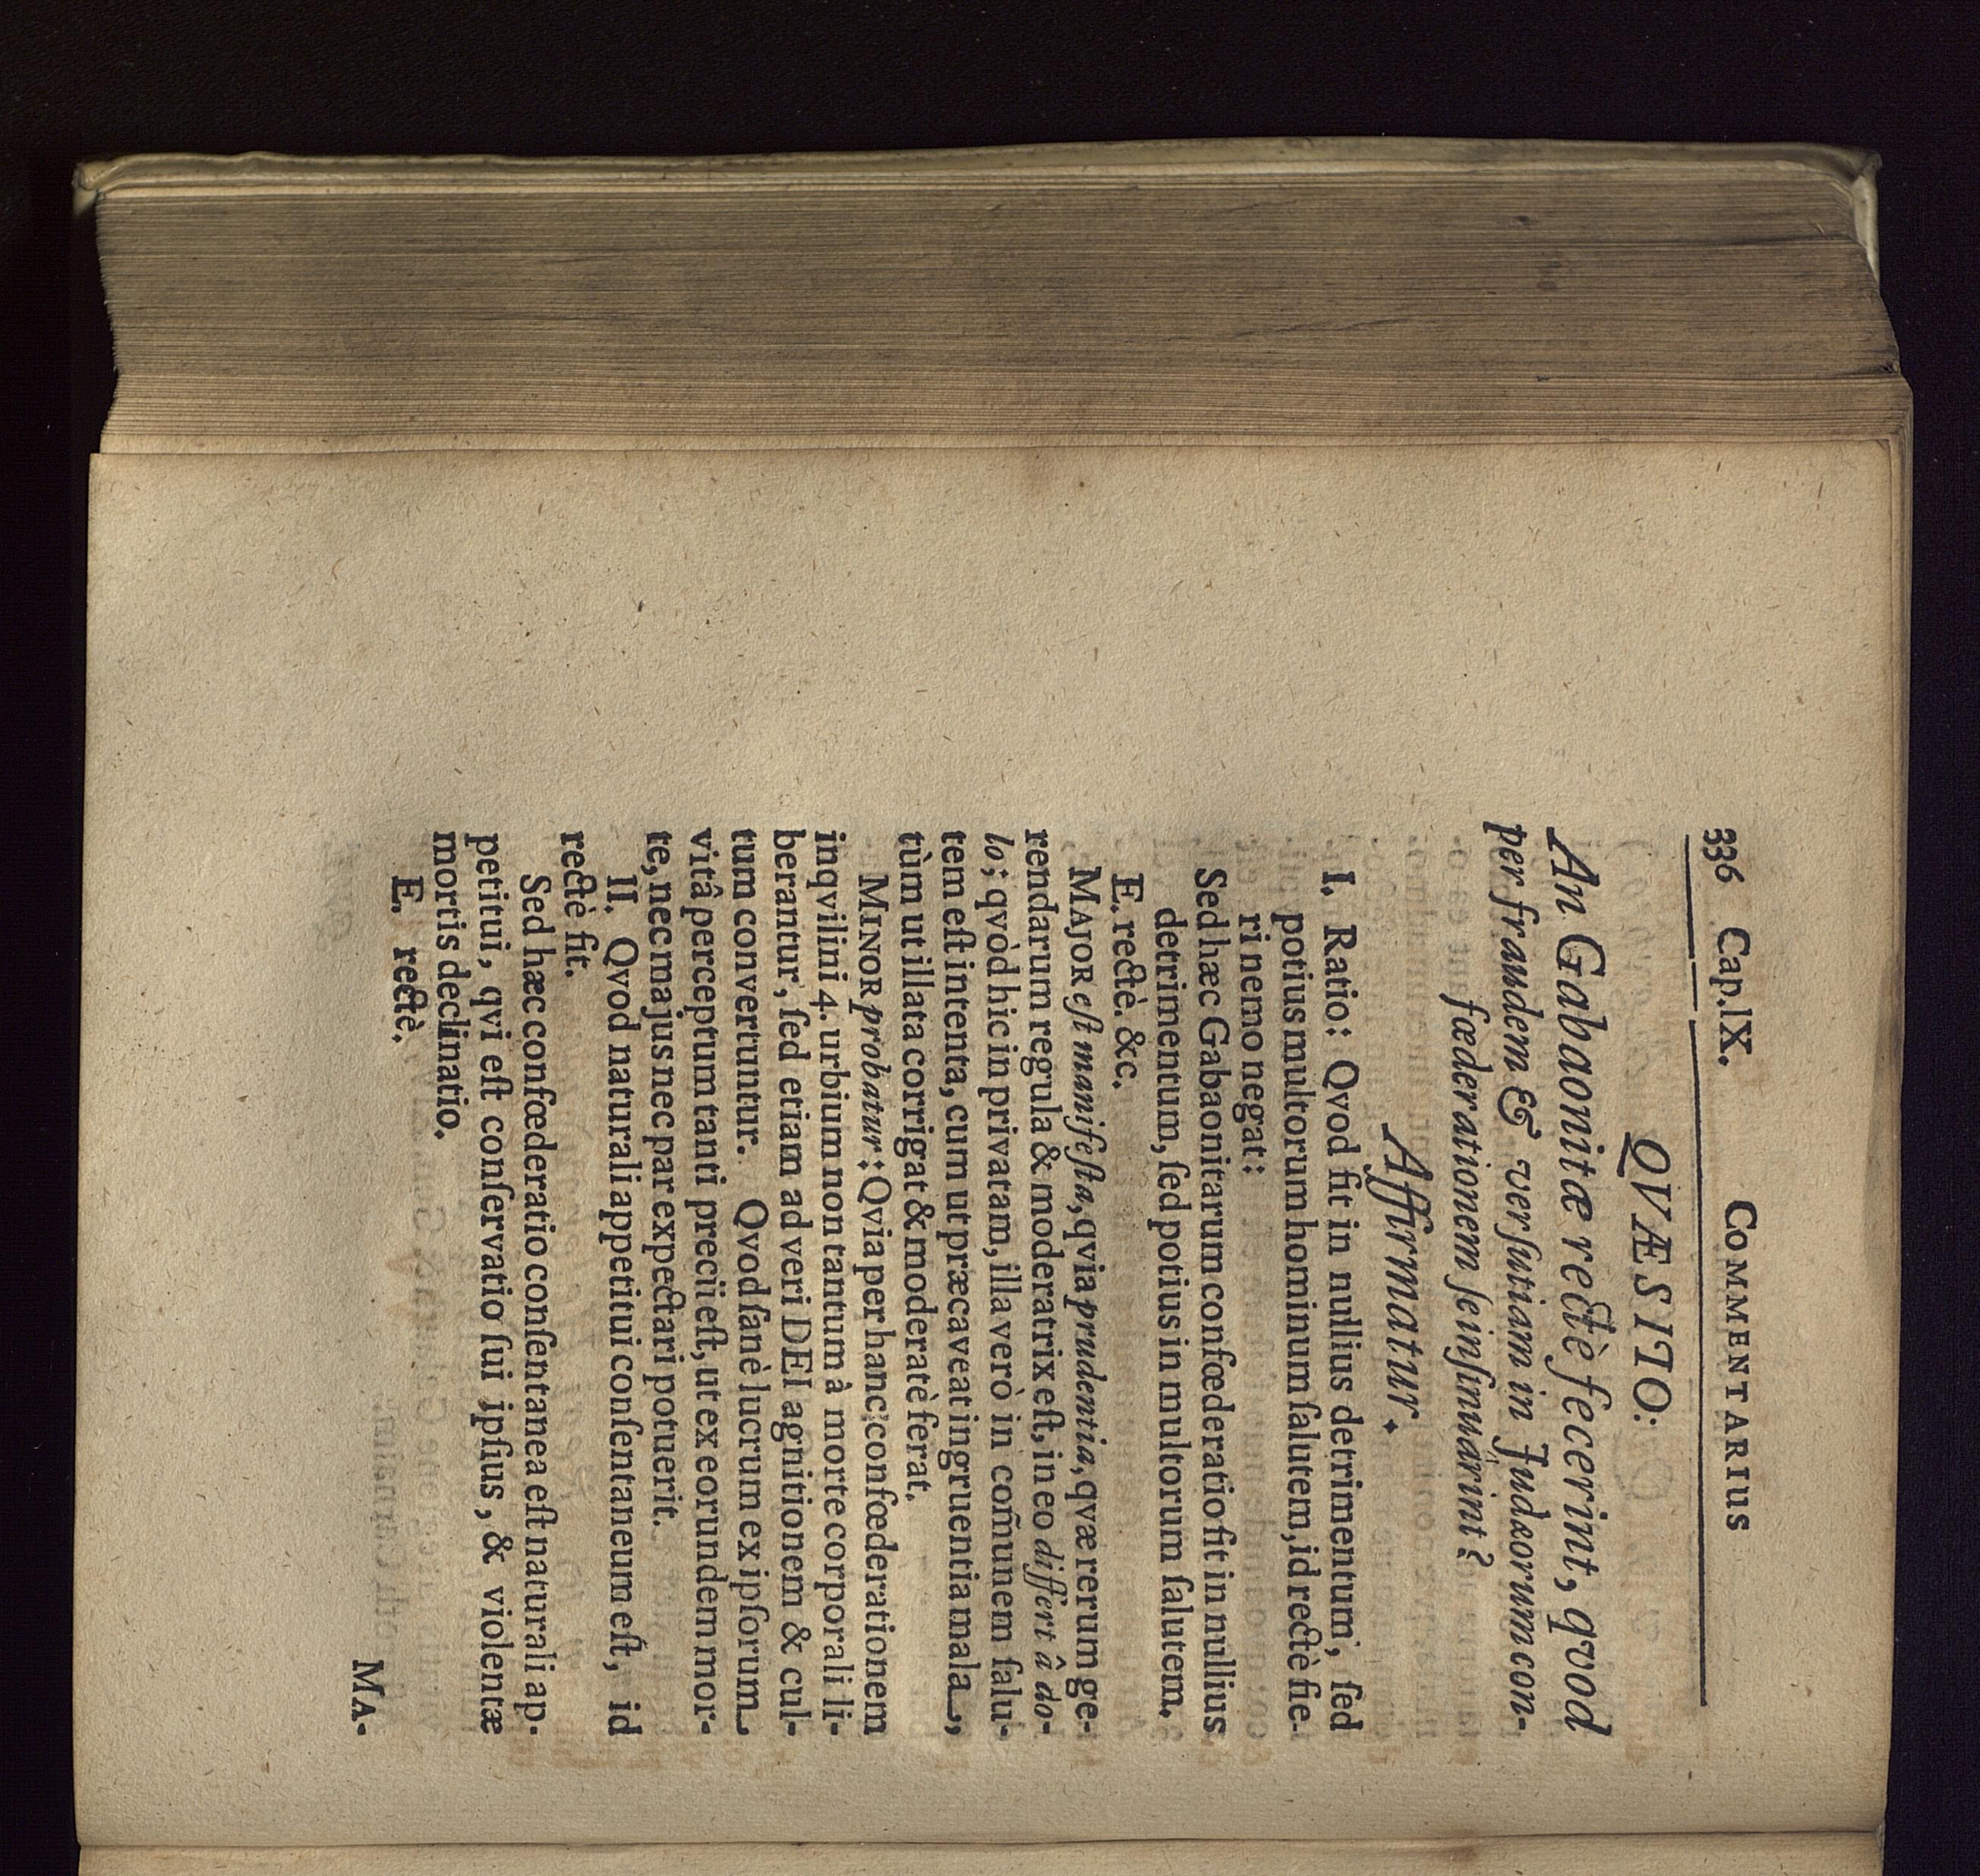 336 Cap. IX. COMMENTARIUS
QVÆSITO:
An Gabaonitæ rectè fecerint, qvod
per fraudem & verſutiam in Judæorum con-
fœderationem ſe inſinuârint?
Affirmatur.
I. Ratio: Qvod fit in nullius detrimentum, ſed
potius multorum hominum ſalutem, id rectè fie-
ri nemo negat:
Sed hæc Gabaonitarum confœderatio fit in nullius
detrimentum, ſed potius in multorum ſalutem.
E. rectè. &c.
MAJOR eſt manifeſta, qvia prudentia, qvæ rerum ge-
rendarum regula & moderatrix eſt, in eo differt â do-
lo; qvòd hic in privatam, illa verò in com̃unem ſalu-
tem eſt intenta, cum ut præcaveat ingruentia mala,
tùm ut illata corrigat & moderatè ferat.
MINOR probatur: Qvia per hanc confœderationem
inqvilini 4. urbium non tantum à morte corporali li-
berantur, ſed etiam ad veri DEI agnitionem & cul-
tum convertuntur. Qvod ſanè lucrum ex ipſorum
vitâ perceptum tanti precii eſt, ut ex eorundem mor-
te, nec majus nec par expectari potuerit.
II. Qvod naturali appetitui conſentaneum eſt, id
rectè fit.
Sed hæc confœderatio conſentanea eſt naturali ap-
petitui, qvi eſt conſervatio ſui ipſius, & violentæ
mortis declinatio.
E. rectè.
MA-